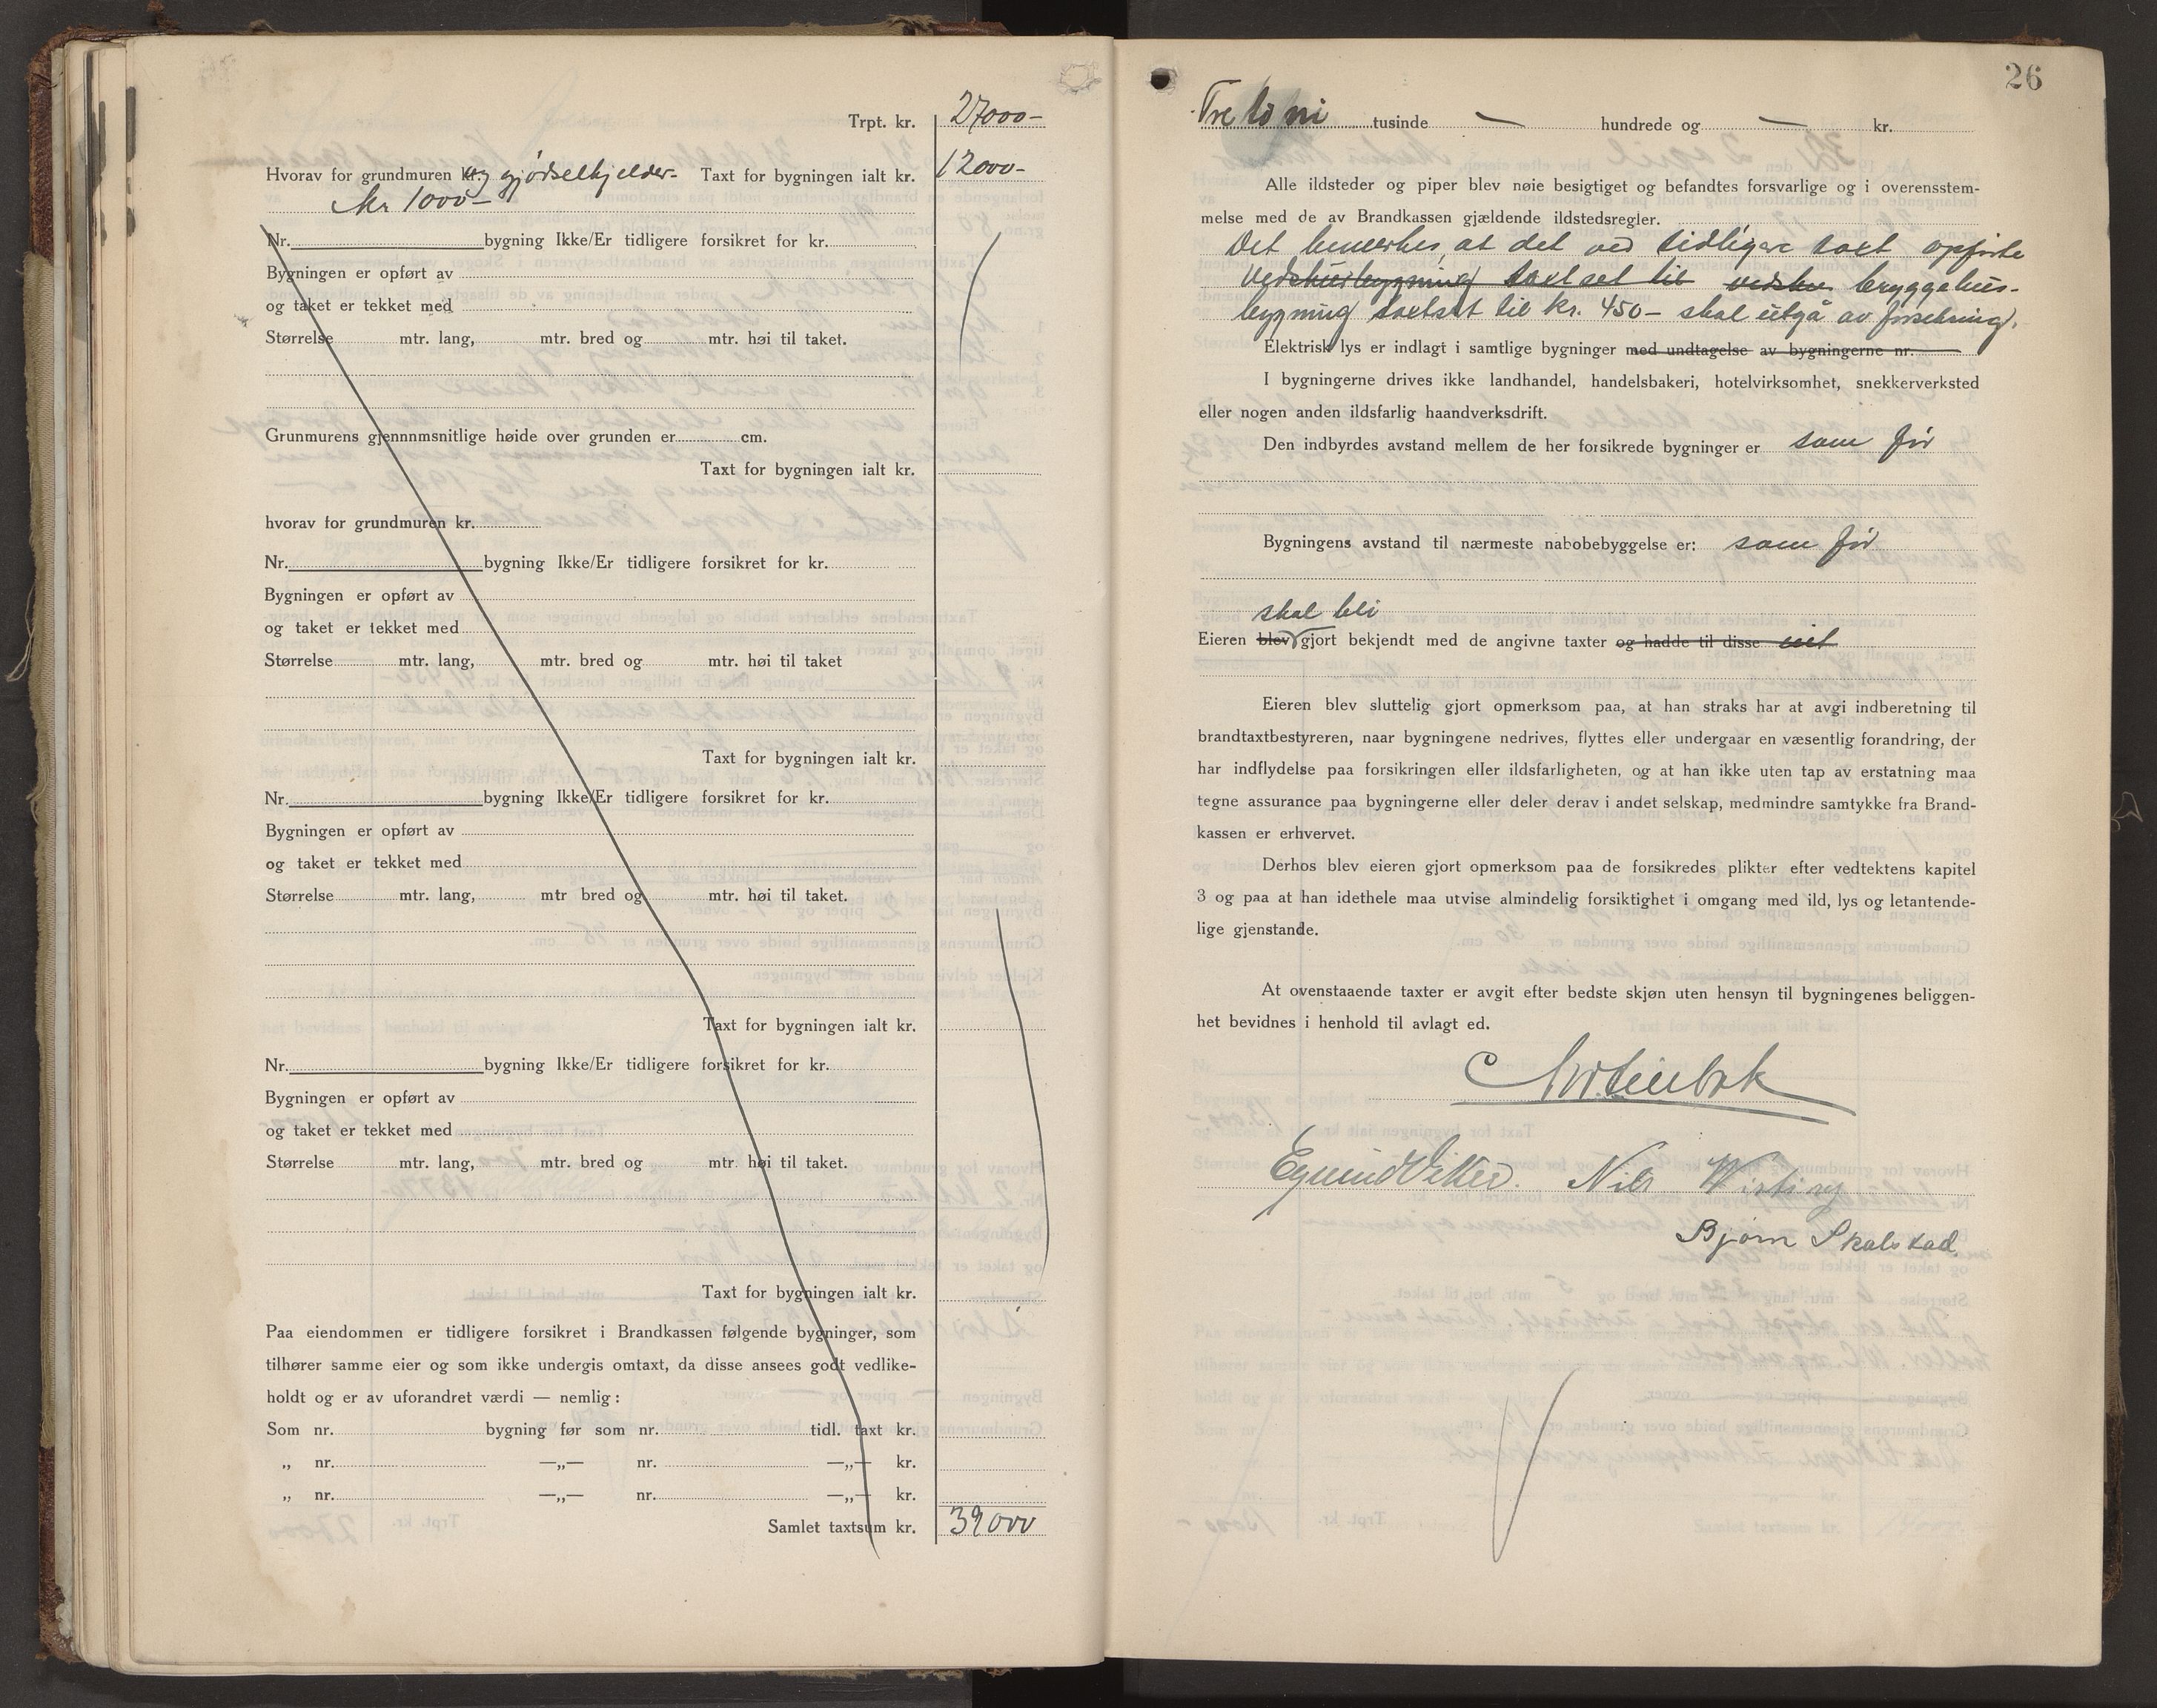 Trpt. kr. 27000-
Hvorav for grundmuren kr. og gjødselkjelder- Taxt for bygningen ialt kr. 12000-
kr 1000-
Nr. bygning Ikke/Er tidligere forsikret for kr.
Bygningen er opført av
og taket er tekket med
Størrelse mtr. lang, mtr. bred og mtr. høi til taket.
Grunmurens gjennnmsnitlige høide over grunden er cm.
Taxt for bygningen ialt kr.
hvorav for grundmuren kr.
Nr. bygning Ikke/Er tidligere forsikret for kr.
Bygningen er opført av
og taket er tekket med
Størrelse mtr. lang, mtr. bred og mtr. høi til taket
Taxt for bygningen ialt kr.
Nr. bygning Ikke/Er tidligere forsikret for kr.
Bygningen er opført av
og taket er tekket med
Størrelse mtr. lang, mtr bred og mtr. høi til taket.
Taxt for bygningen ialt kr.
Nr. bygning Ikke/Er tidligere forsikret for kr.
Bygningen er opført av
og taket er tekket med
Størrelse mtr. lang, mtr. bred og mtr. høi til taket.
Taxt for bygningen ialt kr.
Paa eiendommen er tidligere forsikret i Brandkassen følgende bygninger, som
tilhører samme eier og som ikke undergis omtaxt, da disse ansees godt vedlike-
holdt og er av uforandret værdi — nemlig:
Som nr. bygning før som nr. tidl. taxt kr.
„ nr. —„— nr. —„— kr.
„ nr. —„— nr. —„— kr.
Samlet taxtsum kr. 39000
26
Tretti ni tusinde — hundrede og — kr.
Alle ildsteder og piper blev nøie besigtiget og befandtes forsvarlige og i overensstem-
melse med de av Brandkassen gjældende ildstedsregler.
Det bemerkes, at det ved tidligere taxt opførte
vedskursbygning taxtset til vedsku bryggehus-
bygning taxtset til kr. 450- skal utgå av forsikring.
Elektrisk lys er indlagt i samtlige bygninger med undtagelse av bygningerne nr.
I bygningerne drives ikke landhandel, handelsbakeri, hotelvirksomhet, snekkerverksted
eller nogen anden ildsfarlig haandverksdrift.
Den indbyrdes avstand mellem de her forsikrede bygninger er som før
Bygningens avstand til nærmeste nabobebyggelse er: som før
skal bli
Eieren blev gjort bekjendt med de angivne taxter og hadde til disse intet
Eieren blev sluttelig gjort opmerksom paa, at han straks har at avgi indberetning til
brandtaxtbestyreren, naar bygningene nedrives, flyttes eller undergaar en væsentlig forandring, der
har indflydelse paa forsikringen eller ildsfarligheten, og at han ikke uten tap av erstatning maa
tegne assurance paa bygningerne eller deler derav i andet selskap, medmindre samtykke fra Brand-
kassen er erhvervet.
Derhos blev eieren gjort opmerksom paa de forsikredes plikter efter vedtektens kapitel
3 og paa at han idethele maa utvise almindelig forsiktighet i omgang med ild, lys og letantende-
lige gjenstande.
At ovenstaaende taxter er avgit efter bedste skjøn uten hensyn til bygningenes beliggen-
het bevidnes i henhold til avlagt ed.
Egmund Nils Wirting
Bjørn Skalstad.